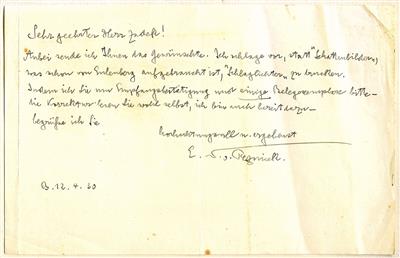 Sehr geehrter Herr
Anbei sende ich Ihnen das Gewünschte. Ich schlage vor, statt "Schattenbilder",
was schon von Eulenberg aufgebraucht ist, "Schlaglichter" zu
Indem ich Sie um Empfangsbestätigung und einige Belegexemplare bitte–
die Korrektur lesen Sie wohl selbst, ich bin auch bereit dazu–
begrüße ich Sie
hochachtungsvoll u. ergebenst
E. N. v. Reznicek.
B. 12. 4. 20